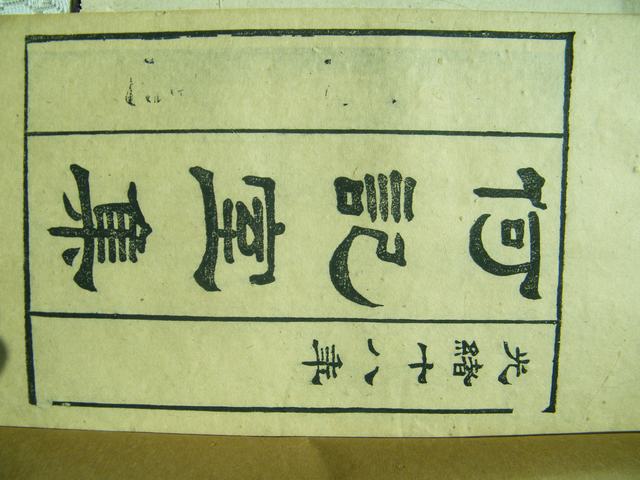 光緒十八年
何記室集